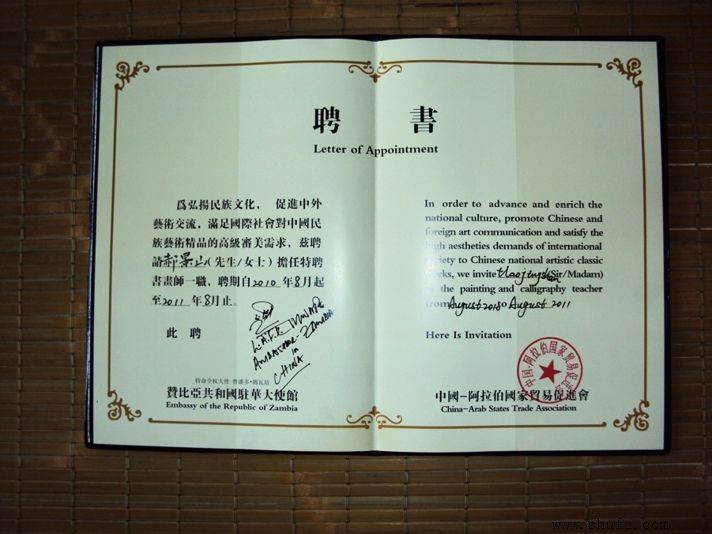 聘 書
Letter of Appointment
爲弘揚民族文化， 促進中外
藝術交流，滿足國際社會對中國民
族藝術精品的高級審美需求，兹聘
請郝景山（先生/女士）擔任特聘
書畫師一職，聘期自2010年8月起
至2011年8月止。
此 聘
L.A.F.K.
Ambassador-Zambia
in
CHINA
特命全權大使
贊比亞共和國駐華大使館
Embassy of the Republic of Zambia
In order to advance and enrich the
national culture, promote Chinese and
foreign art communication and satisfy the
high aesthetics demands of international
society to Chinese national artistic classic
works, we invite Haojingshan(Sir/Madam)
the painting and calligraphy teacher
from August 2010 to August 2011
Here Is Invitation
中國-阿拉伯國家貿易促進會
中國-阿拉伯國家貿易促進會
China-Arab States Trade Association
www.shufa.com